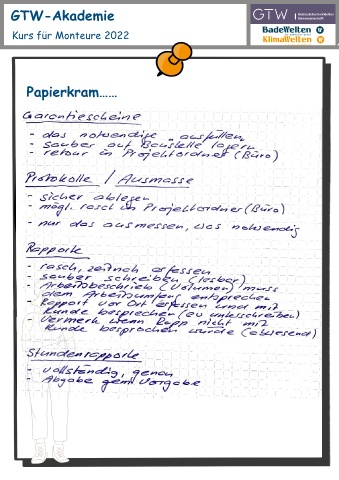 GTW-Akademie
Kurs für Monteure 2022
GTW
BadeWelten
KlimaWelten
Papierkram......
Garantiescheine
- das notwendige ausfüllen
- sauber auf Baustelle lagern
- retour in Projektordner (Büro)
Protokolle / Ausmasse
- sicher ablegen
- mögl. rasch in Projektordner (Büro)
- nur das ausmessen, was notwendig
Rapporte
- rasch, zeitnah erfassen
- sauber schreiben (lesbar)
- Arbeitsbeschrieb (Volumen) muss
dem Arbeitsumfang entsprechen
- Rapport vor Ort erfassen und mit
Kunde besprechen (ev unterschreiben)
- Vermerk wenn Rapp nicht mit
Kunde besprochen wurde (abwesend)
Stundenrapporte
- vollständig, genau
- Abgabe gem Vorgabe